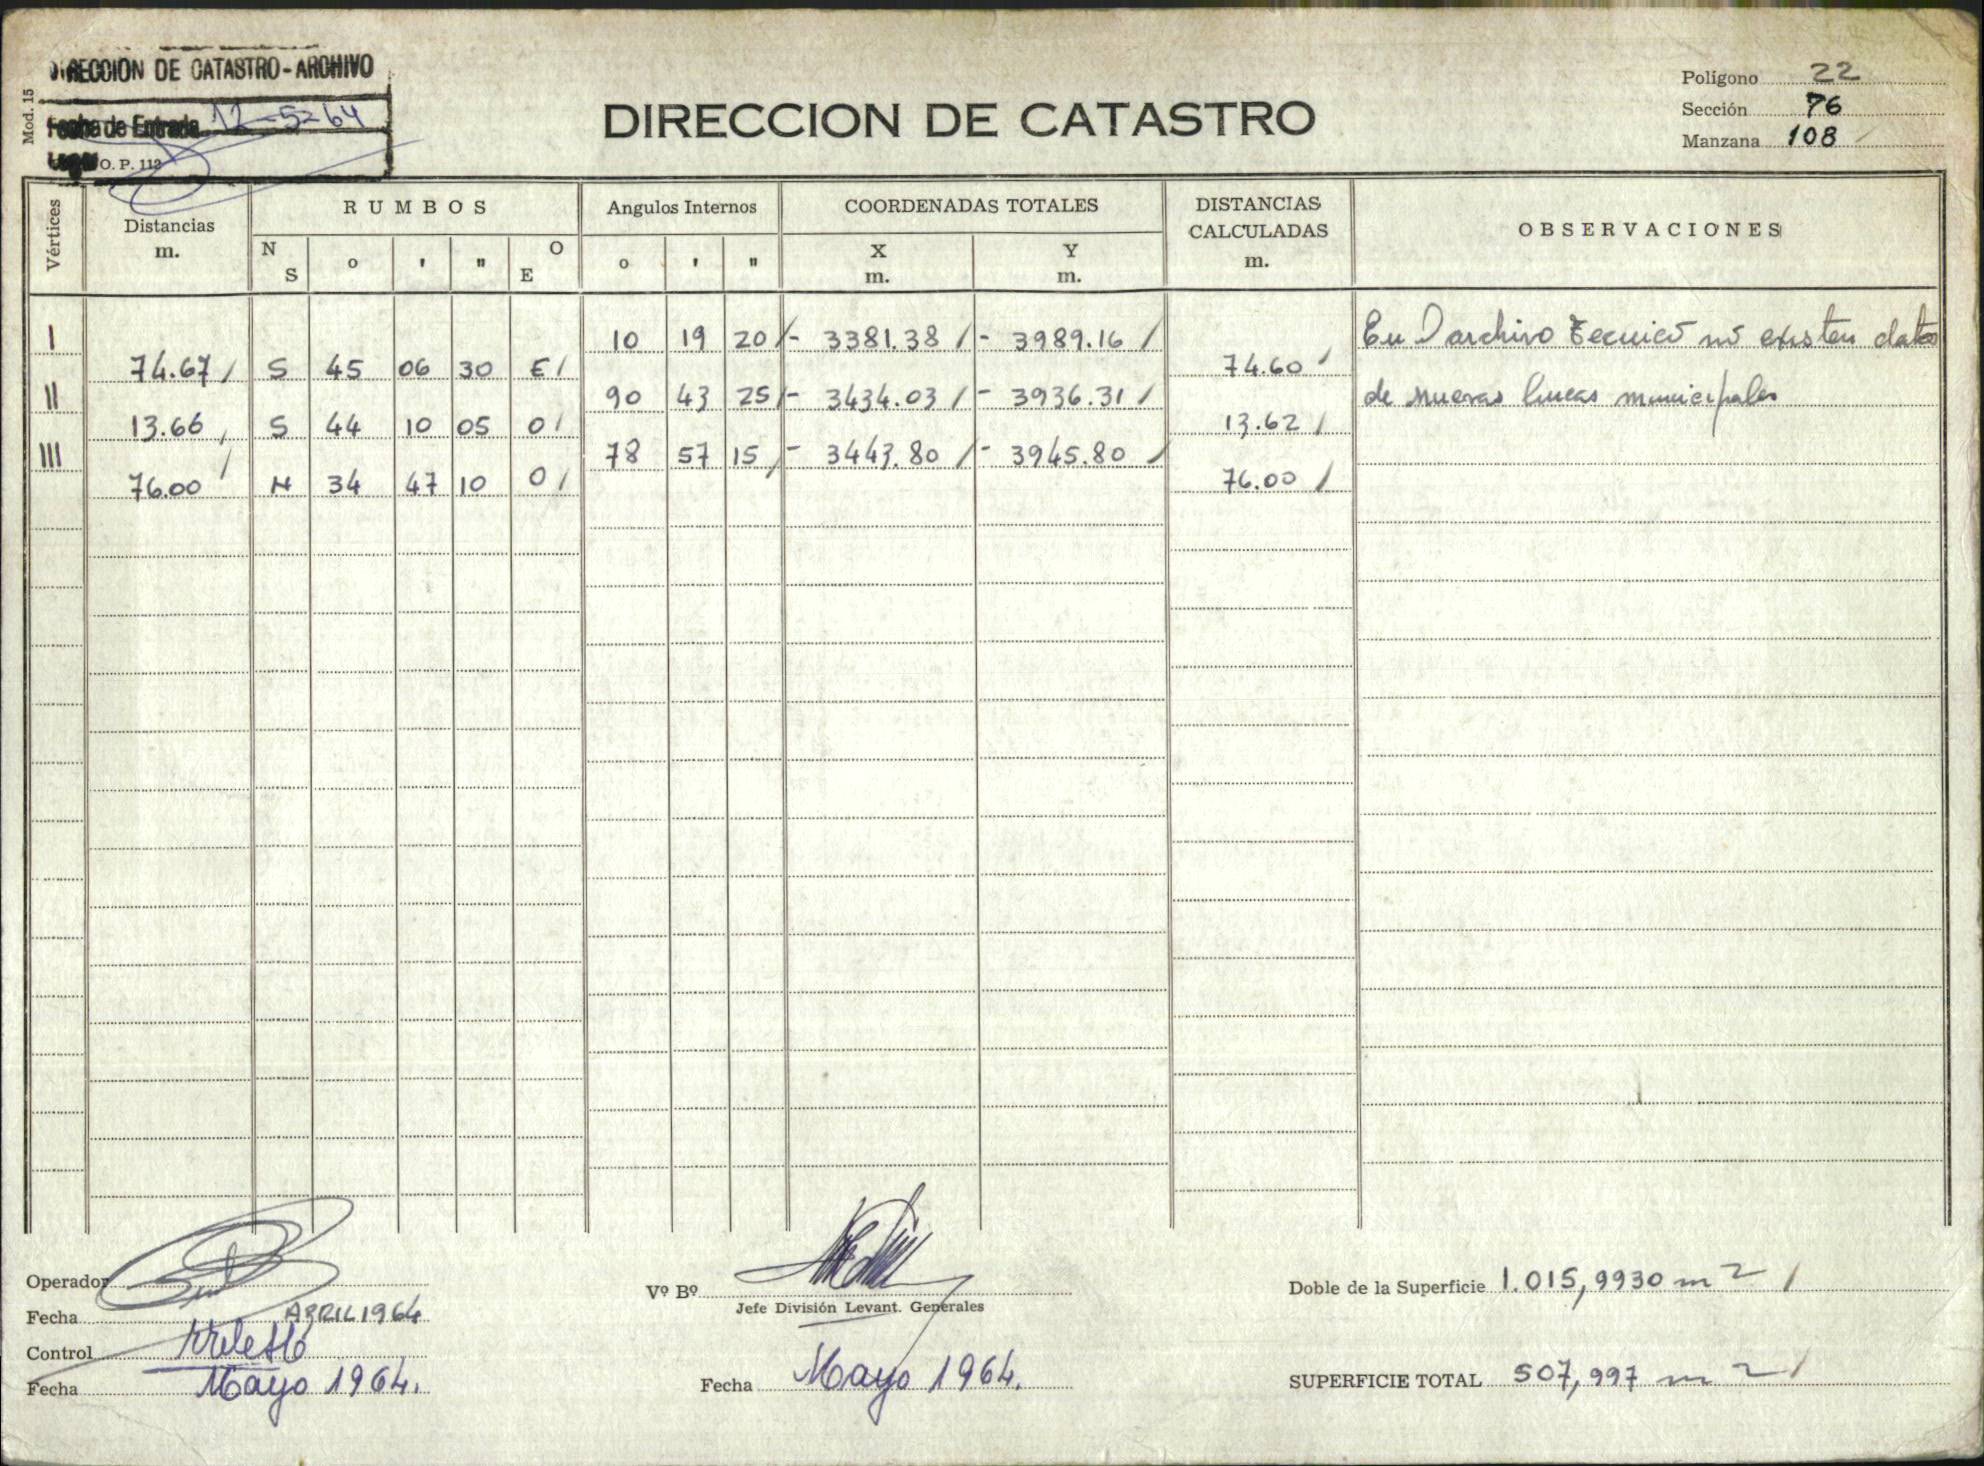 DIRECCION DE CATASTRO - ARCHIVO
Fecha de Entrada 12-5-64
O. P. 112
Mod. 15
DIRECCION DE CATASTRO
Polígono 22
Sección 76
Manzana 108
Vértices
Distancias
m.
RUMBOS
N S ° ' " O E
Angulos Internos
° ' "
COORDENADAS TOTALES
X
m.
Y
m.
DISTANCIAS
CALCULADAS
m.
OBSERVACIONES
I 10 19 20 - 3381.38 - 3989.16
74.67 S 45 06 30 E 74.60
II 90 43 25 - 3434.03 - 3936.31
13.66 S 44 10 05 O 13.62
III 78 57 15 - 3443.80 - 3945.80
76.00 N 34 47 10 O 76.00
En archivo tecnico no existen datos
de nuevas lineas municipales
Operador
Fecha ABRIL 1964
Control
Fecha Mayo 1964.
Vº Bº
Jefe División Levant. Generales
Fecha Mayo 1964.
Doble de la Superficie 1.015,9930 m2
SUPERFICIE TOTAL 507,997 m2